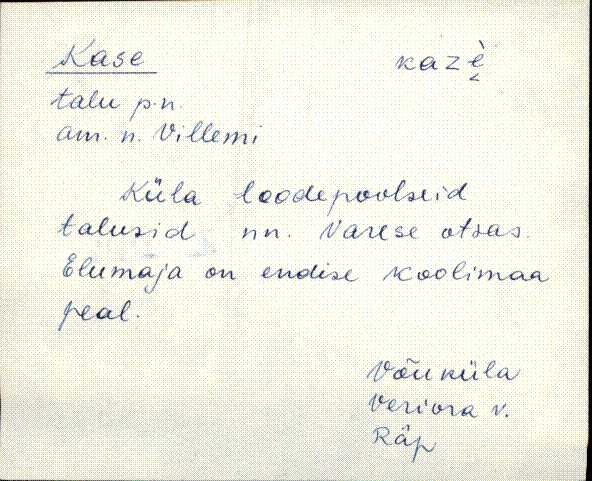 Kase kazè̬
talu p.n.
am. n. Villemi
Küla loodepoolseid
talusid nn. Varese otsas.
Elumaja on endise koolimaa
peal.
Võuküla
Veriora v.
Räp